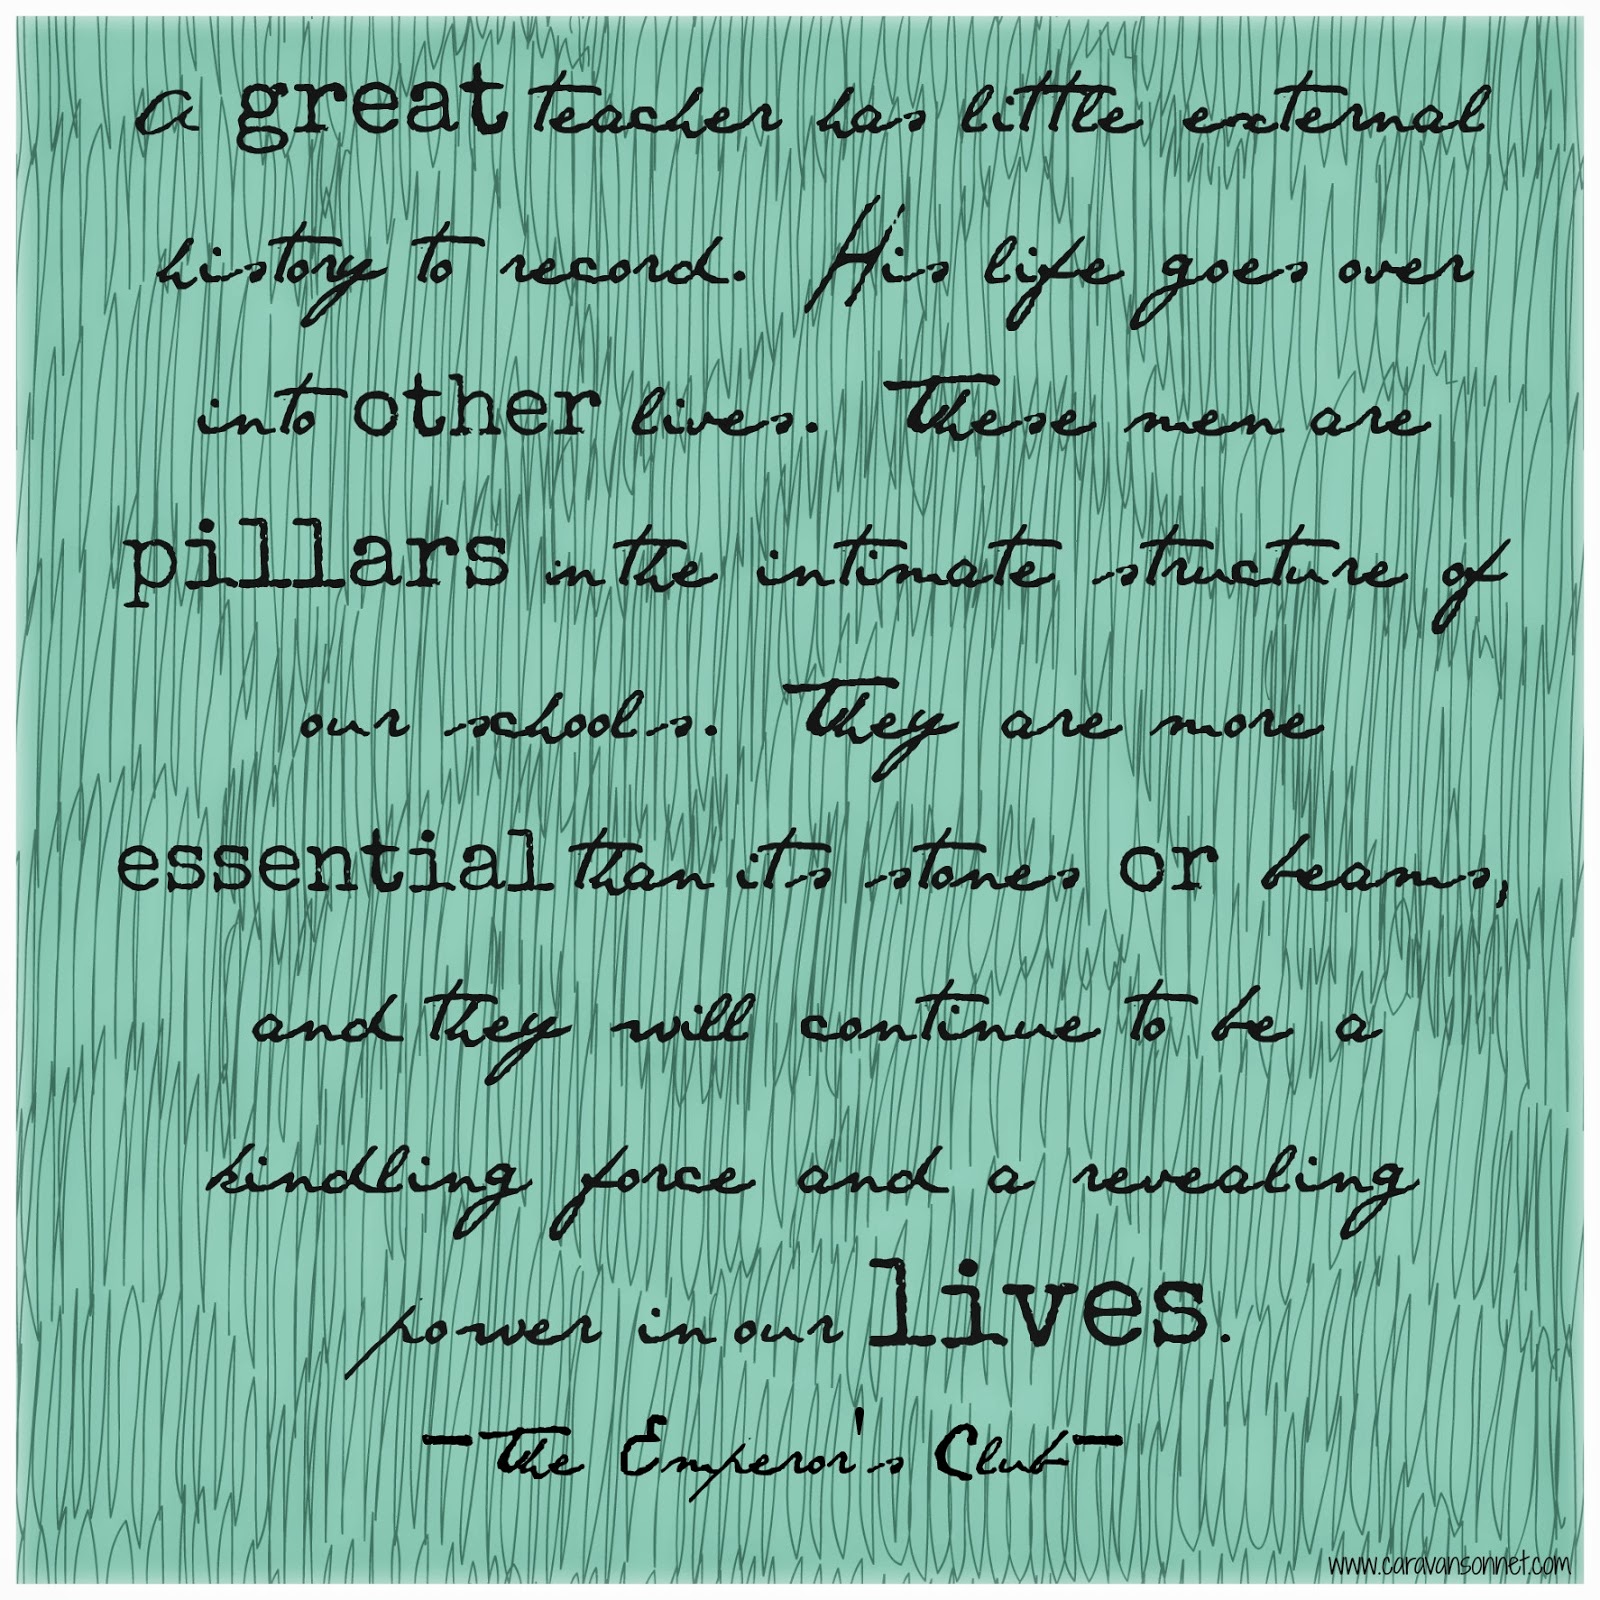 A great teacher has little external
history to record. His life goes over
into other lives. These men are
pillars in the intimate structure of
our schools. They are more
essential than its stones or beams,
and they will continue to be a
kindling force and a revealing
power in our lives.
-The Emperor's Club-
www.caravansonnet.com